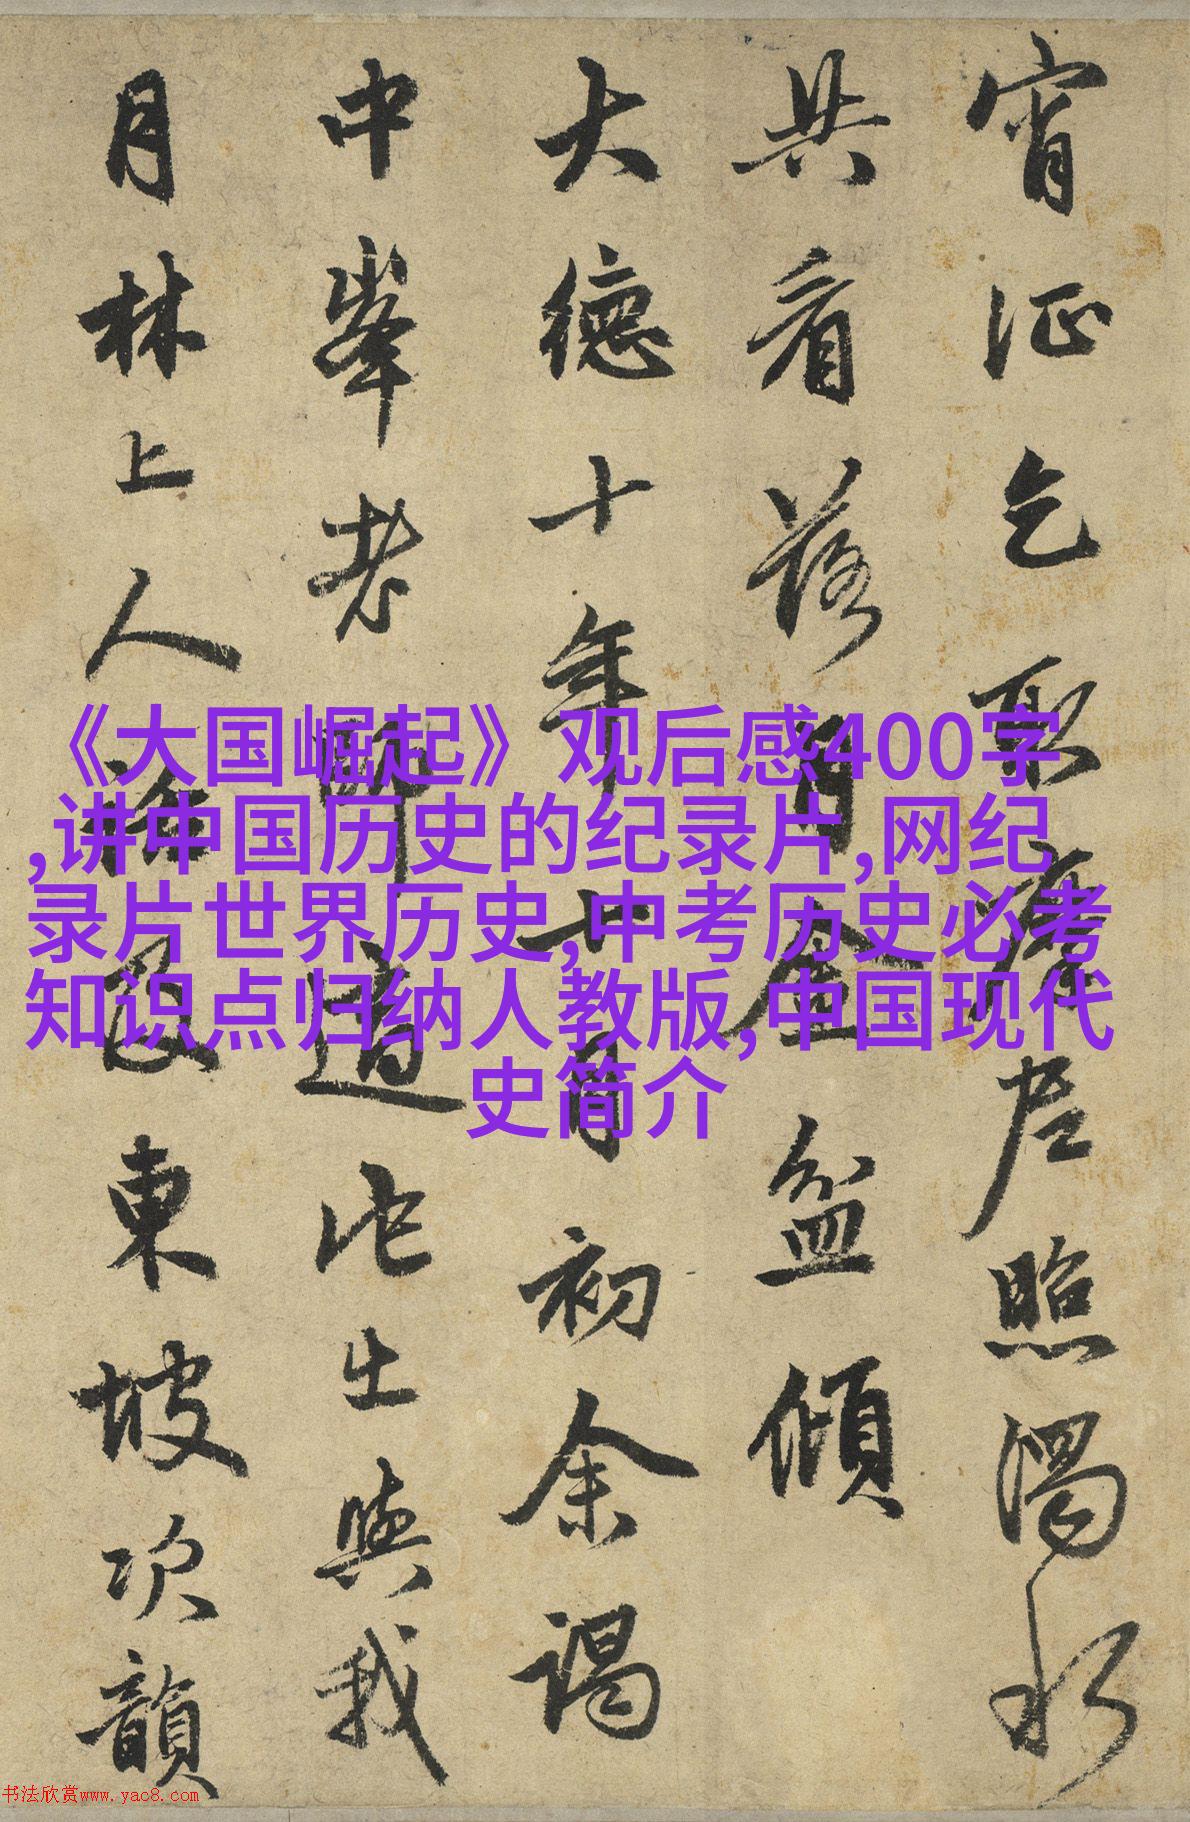 宵征乞取摩尼照濁水
共看落月金盆傾
大德十年十一月初余謁
中峯老師道
出與我
月林上人
東坡次韻
《大国崛起》观后感400字
,讲中国历史的纪录片,网纪
录片世界历史,中考历史必考
知识点归纳人教版,中国现代
史简介
书法欣赏www.yac8.com